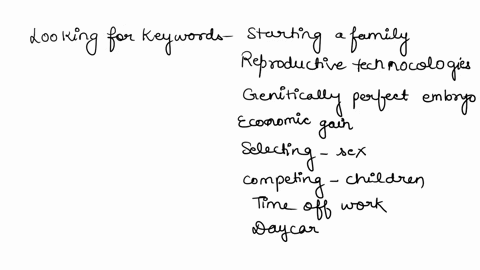 Looking for Keywords - Starting a family
Reproductive technocologies
Genitically perfect embryo
Economic gain
Selecting - sex
competing - children
Time off work
Daycar